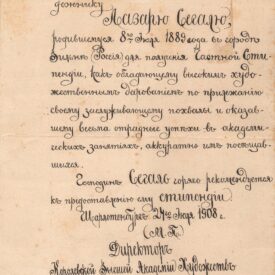 дожнику
Лазарю Сегалю,
родившемуся 8го Іюля 1889 года въ городѣ
(Россія) для полученія частной Сти-
пендіи, какъ обладающему высокимъ худо-
жественнымъ дарованіемъ по прилежанію
своему заслуживающему похвалы и оказав-
шему весьма отрадные успѣхи въ академи-
ческихъ занятіяхъ, аккуратно имъ посѣщав-
шихся.
Господинъ Сегаль горячо рекомендуется
къ предоставленію ему стипендіи
Шарлоттенбургъ. 24го Іюля 1908 г.
(М.П.)
Директоръ
Королевской Высшей Академіи Художествъ